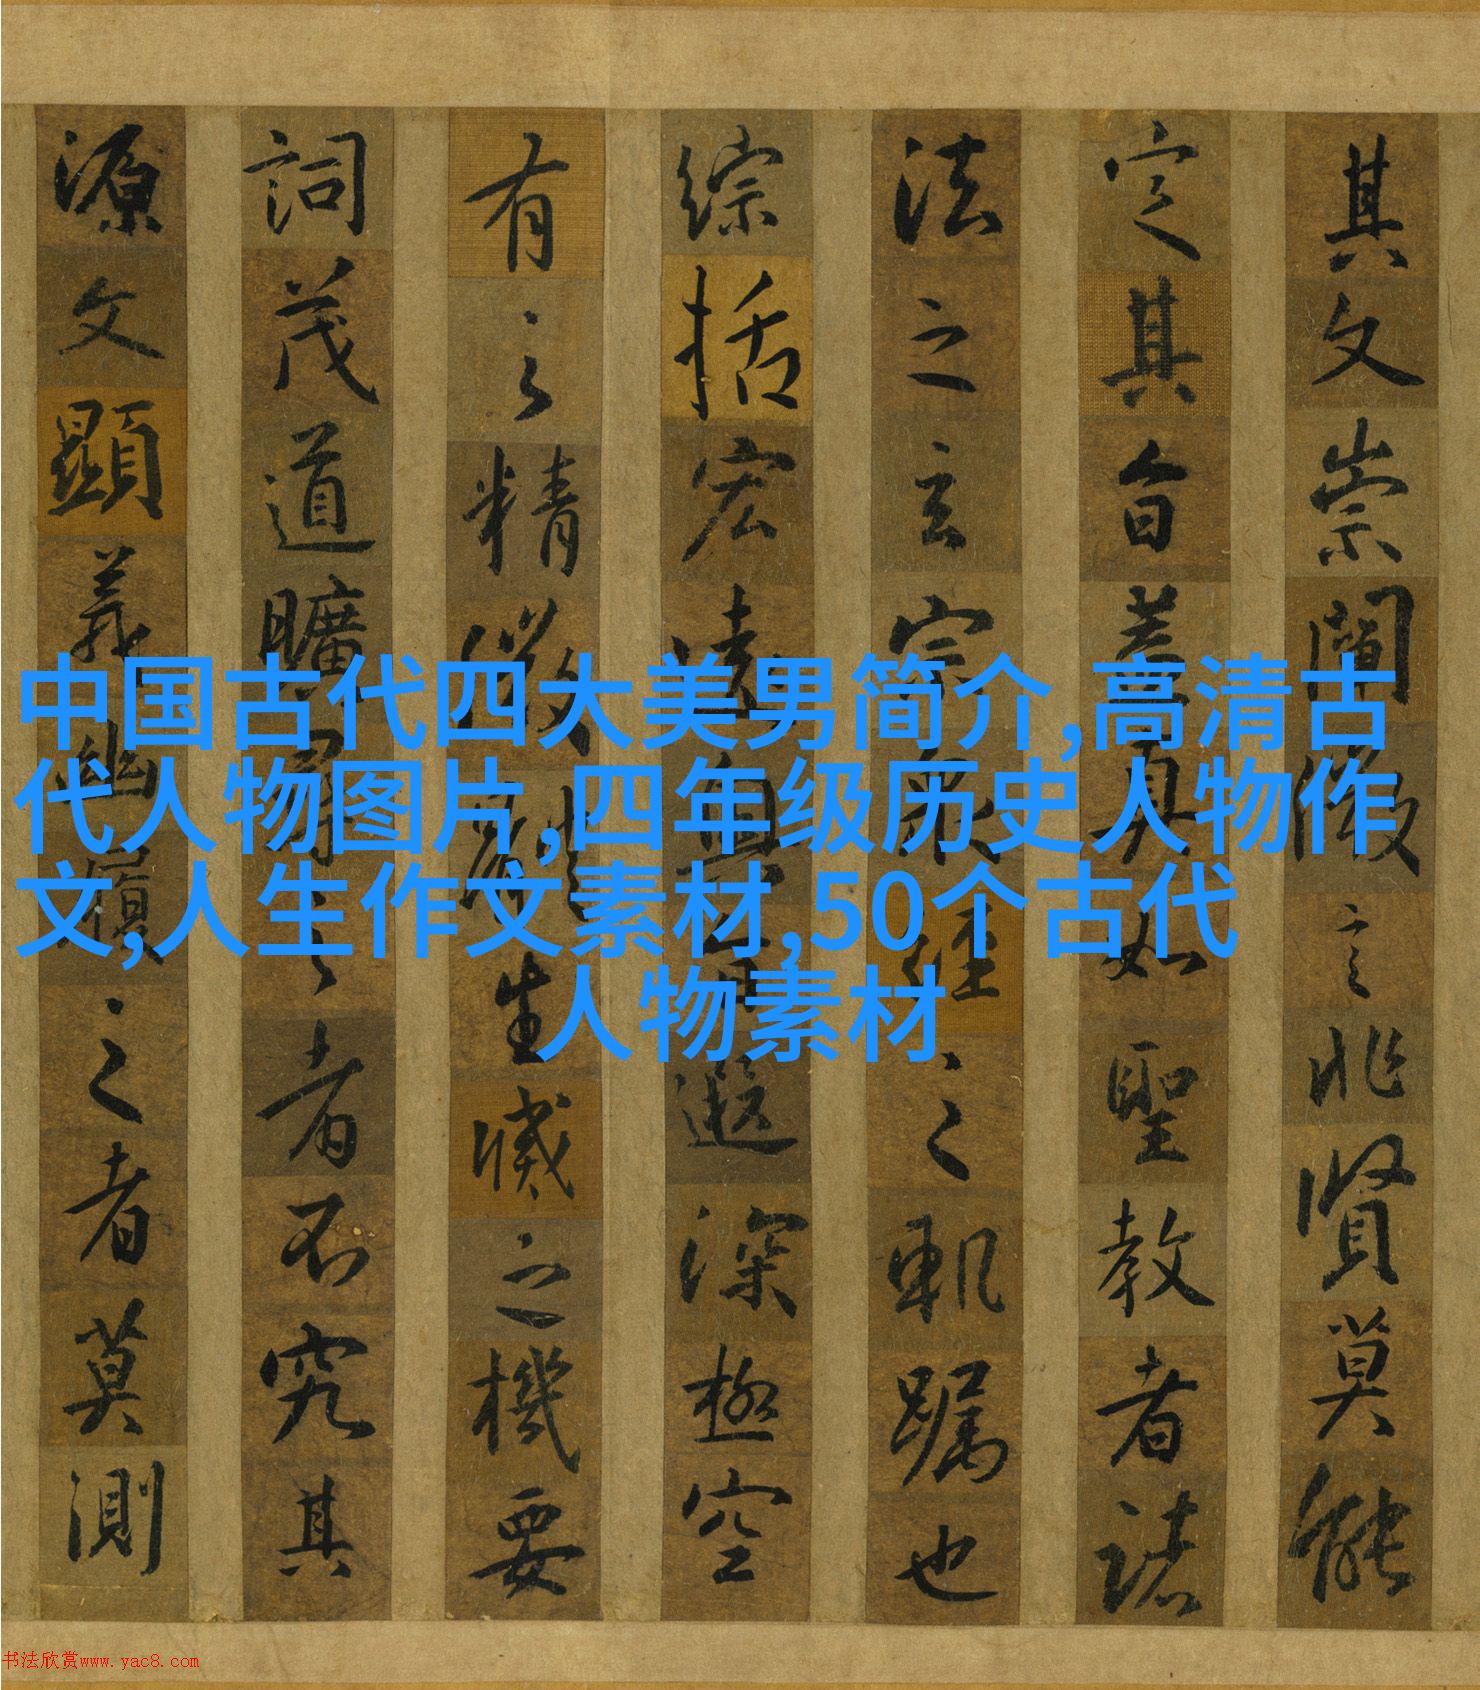 其文崇闡微言非賢莫能
定其旨蓋真如聖教者諸
法之玄宗眾經之軌躅也
綜括宏遠奧旨遐深極空
有之精微體生滅之機要
詞茂道曠尋之者不究其
源文顯義幽履之者莫測
中国古代四大美男简介,高清古
代人物图片,四年级历史人物作
文,人生作文素材,50个古代
人物素材
书法欣赏www.yac8.com